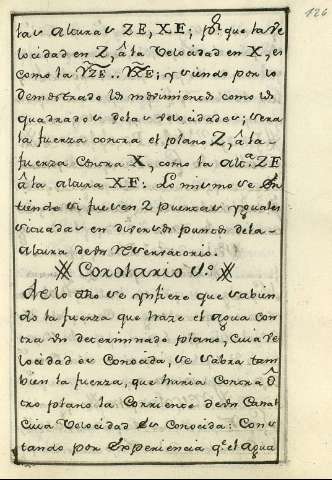 126
las alturas ZE, XE; pr. que la ve
locidad en Z, â la Velocidad en X, es
como la √ZE .. √XE; y siendo por lo
demostrado los movimientos como los
quadrados de las velocidades; sera
la fuerza contra el plano Z, â la
fuerza contra X, como la altª. ZE
â la altura XE: Lo mismo se en
tiende si fuesen 2 puertas yguales
situadas en diversos puntos de la
altura de un Reservatorio.
Corolario 5.º
De lo dho se ynfiere que sabien
do la fuerza que haze el agua con
tra un determinado plano, cuia ve
locidad es Conocida, se sabra tam
bien la fuerza, que haria contra ô
tro plano la corriente de un Canal
cuia Velocidad es conocida: Cons
tando por experiencia qe. el agua